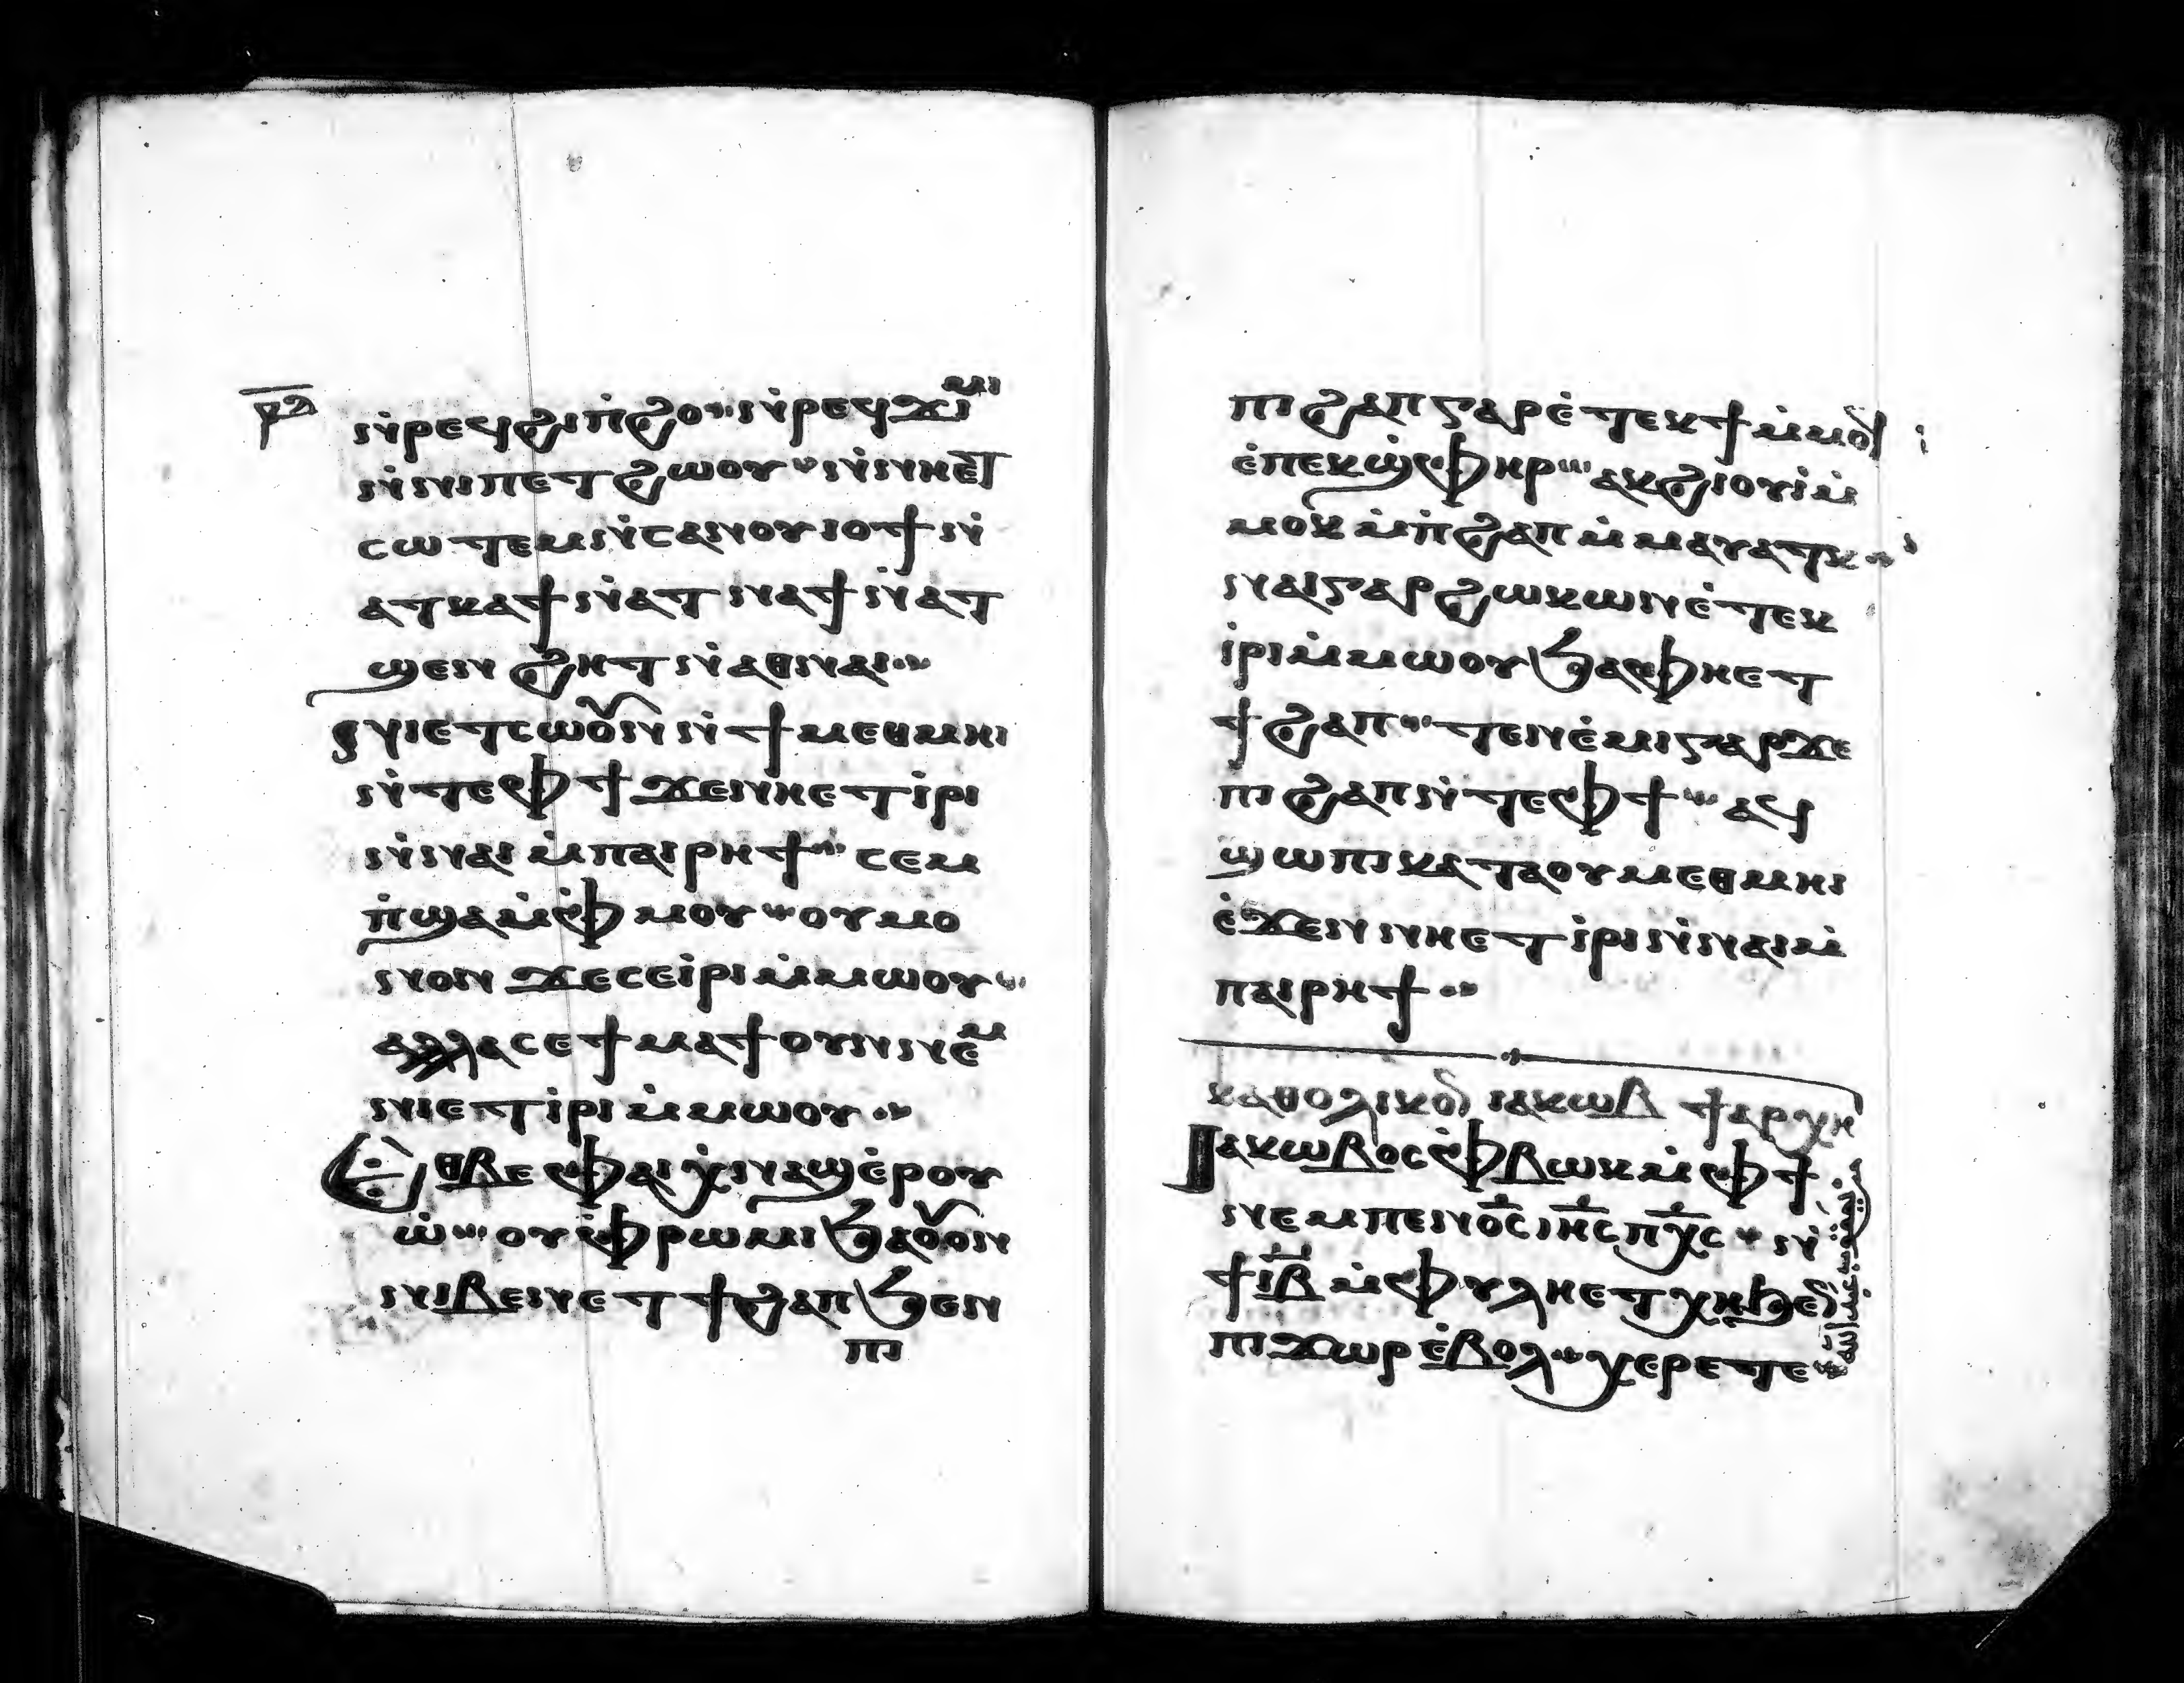 ⲣⲁ̅
ⲛ̀ⲣⲉϥϩⲓⲡ̀ϩⲟ ⲛ̀ⲣⲉϥϫⲓⲙⲓ
ⲛ̀ⲛⲓⲡⲉⲧϩⲱⲟⲩ ⲛ̀ⲛⲏⲉⲧ
ⲥⲱⲧⲉⲙ ⲛ̀ⲥⲁⲛⲟⲩⲓⲟϯ ⲛ̀
ⲁⲧⲕⲁϯ ⲛ̀ⲁⲧⲛⲁϯ ⲛ̀ⲁⲧ
ϣⲉⲛϩⲏⲧ ⲛ̀ⲁⲑⲛⲁⲓ
ⲛⲓⲉⲧⲥⲱⲟⲩⲛ ⲛ̀ϯⲙⲉⲑⲙⲏⲓ
ⲛ̀ⲧⲉⲫϯ ϫⲉⲛⲏⲉⲧⲓ̀ⲣⲓ
ⲛ̀ⲛⲁⲓ ⲙ̀ⲡⲁⲓⲣⲏϯ ⲥⲉⲙ
ⲡ̀ϣⲁ ⲙ̀ⲫ̀ⲙⲟⲩ ⲟⲩⲙⲟ
ⲛⲟⲛ ϫⲉⲥⲉⲓ̀ⲣⲓ ⲙ̀ⲙⲱⲟⲩ
ⲁⲗⲗⲁ ⲥⲉϯⲙⲁϯ ⲟⲩⲛ ⲛⲉⲙ
ⲛⲓⲉⲧⲓ̀ⲣⲓ ⲙ̀ⲙⲱⲟⲩ
ⲉⲑⲃⲉⲫⲁⲓ ⲭ̀ⲛⲁϣⲉ̀ⲣⲟⲩ
ⲱ̀ ⲟⲩ ⲫ̀ⲣⲱⲙⲓ ϧⲁⲟⲩⲟⲛ
ⲛⲓⲃⲉⲛ ⲉⲧϯϩⲁⲡ ϧⲉⲛ
ⲡⲓ
ⲡⲓϩⲁⲡ ⲅⲁⲣ ⲉ̀ⲧⲉⲕϯ ⲙ̀ⲙⲟϥ
ⲉ̀ⲡⲉⲕϣ̀ⲫⲏⲣ ⲁⲕϩⲓⲟⲩⲓ̀ ⲙ̀
ⲙⲟⲕ ⲙ̀ⲡ̀ϩⲁⲡ ⲙ̀ⲙⲁⲩⲁⲧⲕ
ⲛⲁⲓ ⲅⲁⲣ ϩⲱⲕ ⲱⲛ ⲉ̀ⲧⲉⲕ
ⲓ̀ⲣⲓ ⲙ̀ⲙⲱⲟⲩ ϧⲁ ⲫⲏⲉⲧ
ϯϩⲁⲡ ⲧⲉⲛⲉ̀ⲙⲓ ⲅⲁⲣ ϫⲉ
ⲡⲓϩⲁⲡ ⲛ̀ⲧⲉⲫϯ ⲁϥ
ϣⲱⲡⲓ ⲕⲁⲧⲁ ⲟⲩⲙⲉⲑⲙⲏⲓ
ⲉ̀ϫⲉⲛ ⲛⲏⲉⲧⲓ̀ⲣⲓ ⲛ̀ⲛⲁⲓ ⲙ̀
ⲡⲁⲓⲣⲏϯ
ⲕⲁⲑⲟⲗⲓⲕⲟⲛ ⲓⲁⲕⲱⲃ ϯⲁⲣⲭⲏ
Ⲓⲁⲕⲱⲃⲟⲥ ⲫ̀ⲃⲱⲕ ⲙ̀ⲫϯ
ⲛⲉⲙ ⲡⲉⲛⲟ̅ⲥ̅ ⲓⲏ̅ⲥ̅ ⲡⲭ̅ⲥ̅ ⲛ̀
ϯⲓ̅ⲃ̅ ⲙ̀ⲫⲩⲗⲏ ⲉⲧⲭⲏ ϧⲉⲛ
ⲡⲓϫⲱⲣ ⲉ̀ⲃⲟⲗ ⲭⲉⲣⲉⲧⲉ